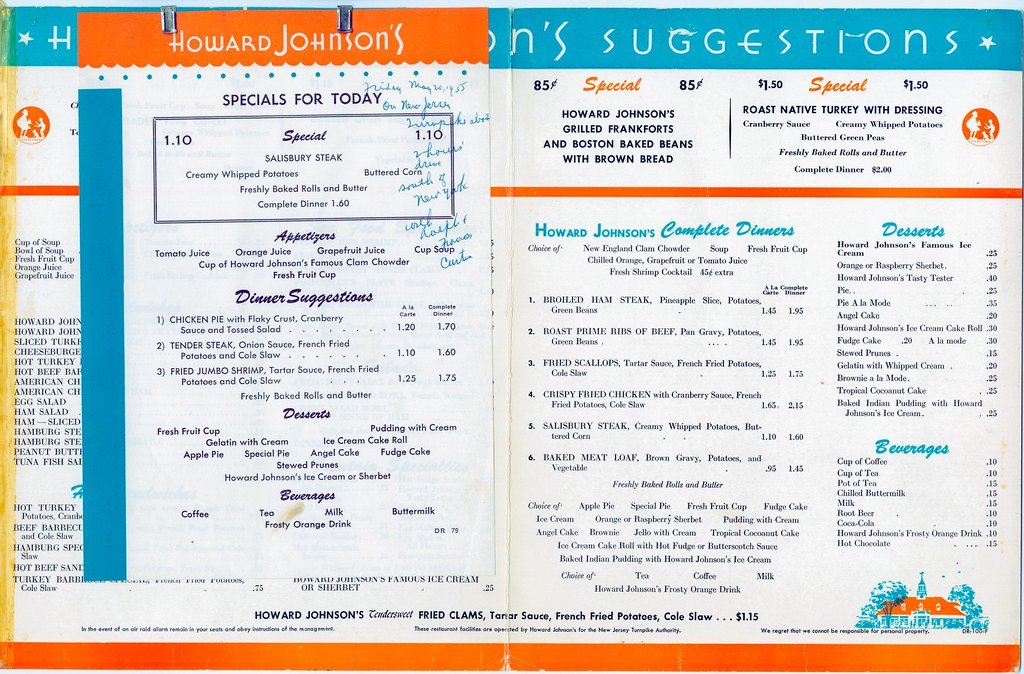 HOWARD JOHNSON'S
SPECIALS FOR TODAY
Friday May 20, 1955
On New Jersey
Turnpike about
2 hours'
drive
south of
New York
with
Ralph &
Frances
Curtis
Special
1.10 1.10
SALISBURY STEAK
Creamy Whipped Potatoes Buttered Corn
Freshly Baked Rolls and Butter
Complete Dinner 1.60
Appetizers
Tomato Juice Orange Juice Grapefruit Juice Cup Soup
Cup of Howard Johnson's Famous Clam Chowder
Fresh Fruit Cup
Dinner Suggestions
A la Carte Complete Dinner
1) CHICKEN PIE with Flaky Crust, Cranberry
Sauce and Tossed Salad . . . . . . . . 1.20 1.70
2) TENDER STEAK, Onion Sauce, French Fried
Potatoes and Cole Slaw . . . . . . . 1.10 1.60
3) FRIED JUMBO SHRIMP, Tartar Sauce, French Fried
Potatoes and Cole Slaw . . . 1.25 1.75
Freshly Baked Rolls and Butter
Desserts
Fresh Fruit Cup Pudding with Cream
Gelatin with Cream Ice Cream Cake Roll
Apple Pie Special Pie Angel Cake Fudge Cake
Stewed Prunes
Howard Johnson's Ice Cream or Sherbet
Beverages
Coffee Tea Milk Buttermilk
Frosty Orange Drink
DR 79
Cup of Soup
Bowl of Soup
Fresh Fruit Cup
Orange Juice
Grapefruit Juice
HOWARD JOHN
HOWARD JOHN
SLICED TURK
CHEESEBURGE
HOT TURKEY
HOT BEEF BAR
AMERICAN CH
AMERICAN CH
EGG SALAD
HAM SALAD
HAM — SLICED
HAMBURG STE
HAMBURG STE
PEANUT BUTT
TUNA FISH SAL
HOT TURKEY
Potatoes, Cranb
BEEF BARBECU
and Cole Slaw
HAMBURG SPEC
Slaw
HOT BEEF SAND
TURKEY BARBECUE SPECIAL, French Fried Potatoes,
Cole Slaw .75
HOWARD JOHNSON'S FAMOUS ICE CREAM
OR SHERBET .25
N'S SUGGESTIONS
85¢ Special 85¢
HOWARD JOHNSON'S
GRILLED FRANKFORTS
AND BOSTON BAKED BEANS
WITH BROWN BREAD
$1.50 Special $1.50
ROAST NATIVE TURKEY WITH DRESSING
Cranberry Sauce Creamy Whipped Potatoes
Buttered Green Peas
Freshly Baked Rolls and Butter
Complete Dinner $2.00
HOWARD JOHNSON'S Complete Dinners
Choice of· New England Clam Chowder Soup Fresh Fruit Cup
Chilled Orange, Grapefruit or Tomato Juice
Fresh Shrimp Cocktail 45¢ extra
A La Carte Complete Dinner
1. BROILED HAM STEAK, Pineapple Slice, Potatoes,
Green Beans 1.45 1.95
2. ROAST PRIME RIBS OF BEEF, Pan Gravy, Potatoes,
Green Beans . . . . . 1.45 1.95
3. FRIED SCALLOPS, Tartar Sauce, French Fried Potatoes,
Cole Slaw . 1.25 1.75
4. CRISPY FRIED CHICKEN with Cranberry Sauce, French
Fried Potatoes, Cole Slaw . 1.65 2.15
5. SALISBURY STEAK, Creamy Whipped Potatoes, But-
tered Corn . 1.10 1.60
6. BAKED MEAT LOAF, Brown Gravy, Potatoes, and
Vegetable .95 1.45
Freshly Baked Rolls and Butter
Choice of· Apple Pie Special Pie Fresh Fruit Cup Fudge Cake
Ice Cream Orange or Raspberry Sherbet Pudding with Cream
Angel Cake Brownie Jello with Cream Tropical Cocoanut Cake
Ice Cream Cake Roll with Hot Fudge or Butterscotch Sauce
Baked Indian Pudding with Howard Johnson's Ice Cream
Choice of· Tea Coffee Milk
Howard Johnson's Frosty Orange Drink
Desserts
Howard Johnson's Famous Ice
Cream .25
Orange or Raspberry Sherbet. .25
Howard Johnson's Tasty Tester .40
Pie. . .25
Pie A la Mode .35
Angel Cake .20
Howard Johnson's Ice Cream Cake Roll .30
Fudge Cake .20 A la mode .30
Stewed Prunes . .15
Gelatin with Whipped Cream . .20
Brownie a la Mode. .25
Tropical Cocoanut Cake .25
Baked Indian Pudding with Howard
Johnson's Ice Cream. .25
Beverages
Cup of Coffee .10
Cup of Tea .10
Pot of Tea .15
Chilled Buttermilk .15
Milk .15
Root Beer .10
Coca-Cola .10
Howard Johnson's Frosty Orange Drink .10
Hot Chocolate .15
HOWARD JOHNSON'S Tendersweet FRIED CLAMS, Tartar Sauce, French Fried Potatoes, Cole Slaw . . . $1.15
In the event of an air raid alarm remain in your seats and obey instructions of the management. These restaurant facilities are operated by Howard Johnson's for the New Jersey Turnpike Authority. We regret that we cannot be responsible for personal property. DR-100-F